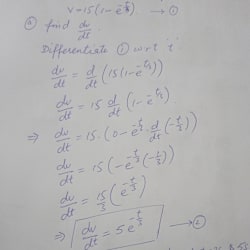 V=15(1-e^{-t/3}) → ①
ⓐ find dv/dt.
Differentiate ① w.r.t 't'
dv/dt = d/dt (15(1-e^{-t/3}))
dv/dt = 15 d/dt (1-e^{-t/3})
⇒ dv/dt = 15·(0-e^{-t/3}·d/dt(-t/3))
dv/dt = 15(-e^{-t/3}(-1/3))
dv/dt = 15/3 (e^{-t/3})
⇒ dv/dt = 5e^{-t/3} → ②